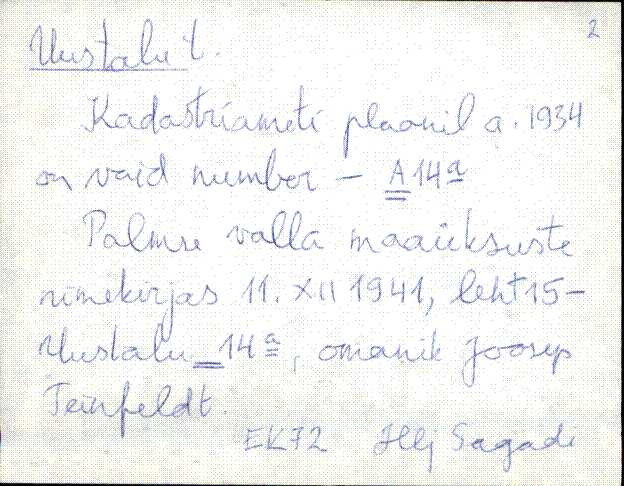 2
Uustalu t.
Kadastriameti plaanil a. 1934
on vaid number – A 14a
Palmse valla maaüksuste
nimekirjas 11. XII 1941, leht 15 –
Uustalu _ 14a, omanik Joosep
Teinfeldt.
EK72 Hlj Sagadi